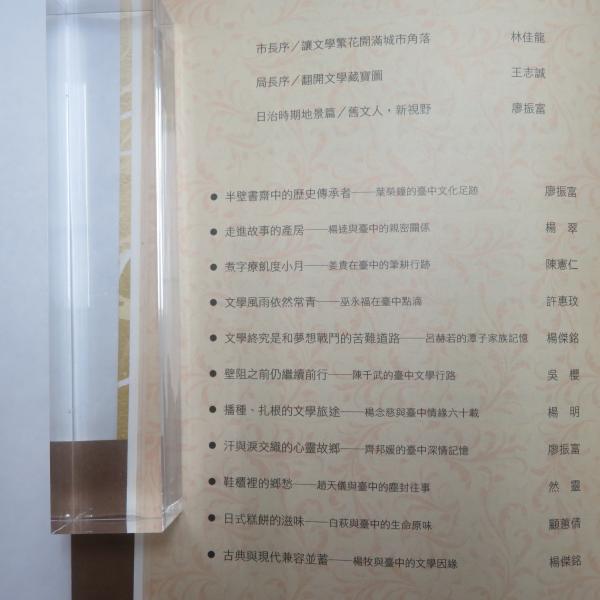 市長序／讓文學繁花開滿城市角落 林佳龍
局長序／翻開文學藏寶圖 王志誠
日治時期地景篇／舊文人，新視野 廖振富
● 半壁書齋中的歷史傳承者——葉榮鐘的臺中文化足跡 廖振富
● 走進故事的產房——楊逵與臺中的親密關係 楊 翠
● 煮字療飢度小月——姜貴在臺中的筆耕行跡 陳憲仁
● 文學風雨依然常青——巫永福在臺中點滴 許惠玟
● 文學終究是和夢想戰鬥的苦難道路——呂赫若的潭子家族記憶 楊傑銘
● 壁阻之前仍繼續前行——陳千武的臺中文學行路 吳 櫻
● 播種、扎根的文學旅途——楊念慈與臺中情緣六十載 楊 明
● 汗與淚交織的心靈故鄉——齊邦媛的臺中深情記憶 廖振富
● 鞋櫃裡的鄉愁——趙天儀與臺中的塵封往事 然 靈
● 日式糕餅的滋味——白萩與臺中的生命原味 顧蕙倩
● 古典與現代兼容並蓄——楊牧與臺中的文學因緣 楊傑銘